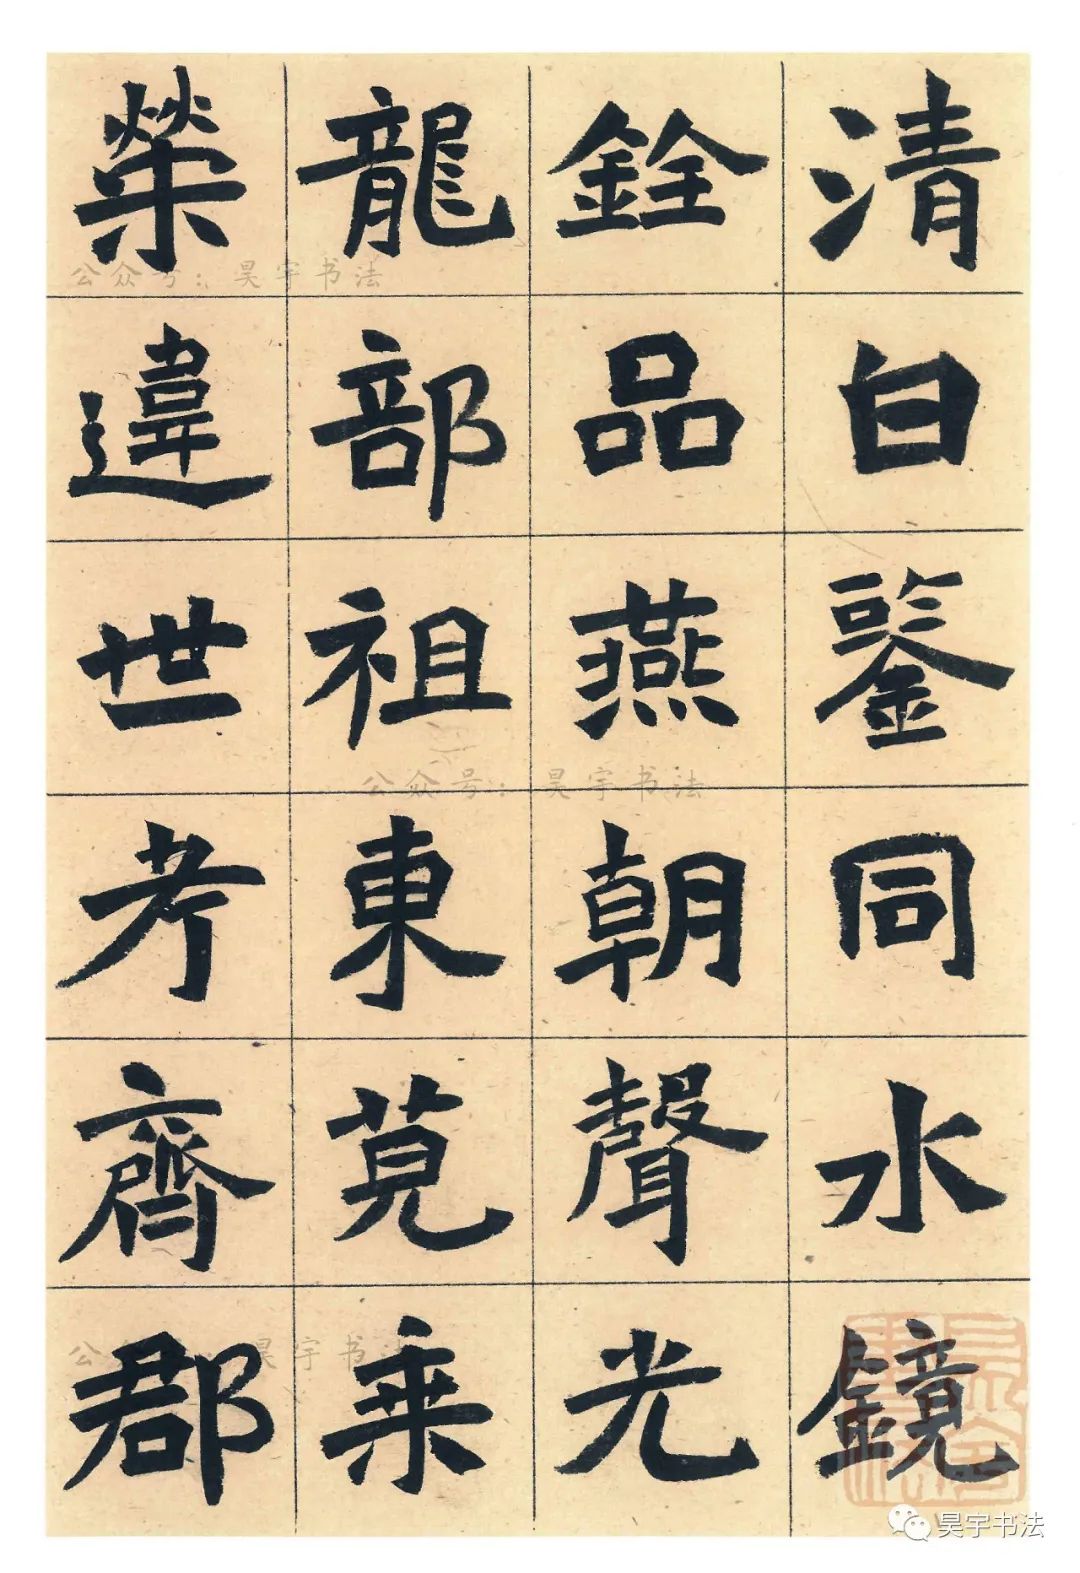 清白鑒同水鏡
銓品燕朝聲光
龍部祖東莧乘
榮違世考齊郡
公众号：昊宇书法
公众号：昊宇书法
公众号：昊宇书法
昊宇书法